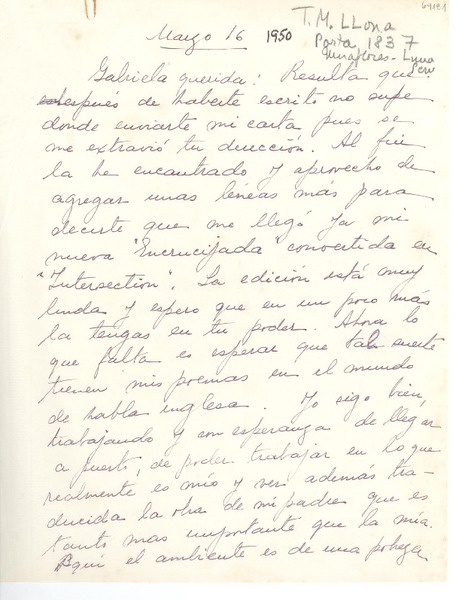 T. M. LLona
Marzo 16 1950
Porta 183 7
Miraflores - Lima
Perú
Gabriela querida: Resulta que
después de haberte escrito no supe
donde enviarte mi carta, pues se
me extravió tu dirección. Al fin
la he encontrado y aprovecho de
agregar unas líneas más para
decirte que me llegó ya mi
nueva "Encrucijada" convertida en
"Intersection". La edición está muy
linda y espero que en un poco más
la tengas en tu poder. Ahora lo
que falta es esperar que tal suerte
tienen mis poemas en el mundo
de habla inglesa. Yo sigo bien,
trabajando y con esperanza de llegar
a puerto, de poder trabajar en lo que
realmente es mío y ver además tra-
ducida la obra de mi padre que es
tanto mas importante que la mía.
Aquí el ambiente es de una pobreza